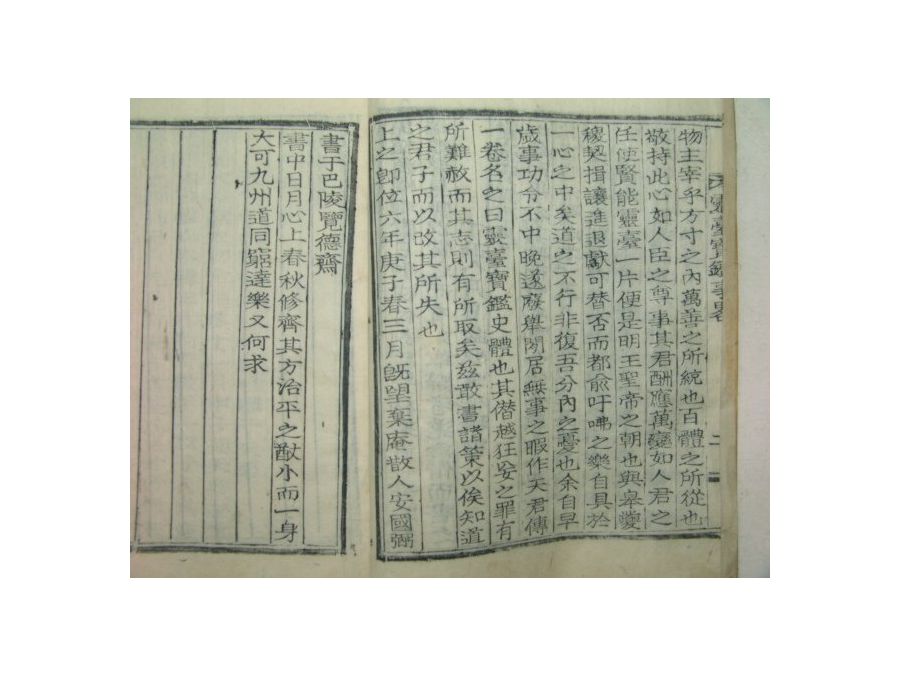 靈臺寶鑑事畧
二
物主宰乎方寸之內萬善之所統也百體之所從也
敬持此心如人臣之尊事其君酬應萬變如人君之
任使賢能靈臺一片便是明王聖帝之朝也與皋夔
稷契揖讓進退獻可替否而都俞吁咈之樂自具於
一心之中矣道之不行非復吾分內之憂也余自早
歲事功分不中晚遂廢舉閒居無事之暇作天君傳
一卷名之曰靈臺寶鑑史體也其僭越狂妄之罪有
所難赦而其志則有所取矣玆敢書諸策以俟知道
之君子而以改其所失也
上之卽位六年庚子春三月旣望棄庵散人安國弼
書于巴陵覽德齋
書中日月心上春秋修齊其方治平之猷小而一身
大可九州道同窮達樂又何求